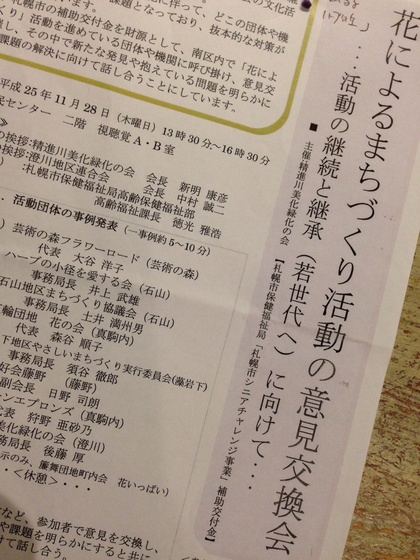 花によるまちづくり活動の意見交換会
・・活動の継続と継承（若世代へ）に向けて・・・・
■ 主催精進川美化緑化の会 【札幌市保健福祉局「札幌市シニアチャレンジ事業」補助交付金】
に伴って、どこの団体や機
課題となっており、抜本的な対策が
、札幌市の補助交付金を財源として、南区内で「花によ
くり」活動を進めている団体や機関に呼び掛け、意見交
し、その中で新たな発見や抱えている問題を明らかに
課題の解決に向けて話し合うことにしています。
平成 25 年 11 月 28 日（木曜日）13 時 30 分～16 時 30 分
民センター 二階 視聴覚 A・B 室
の挨拶：精進川美化緑化の会 会長 新明 康彦
挨拶：澄川地区連合会 会長 中村 誠二
：札幌市保健福祉局高齢保健福祉部
高齢福祉課長 徳光 雅浩
・ 活動団体の事例発表（一事例約 5～10 分）
）芸術の森フラワーロード（芸術の森）
代表 大谷 洋子
ハーブの小径を愛する会（石山）
事務局長 井上 武雄
石山地区まちづくり協議会（石山）
事務局長 土井 満州男
輪団地 花の会（真駒内）
代表 森谷 順子
下地区やさしいまちづくり実行委員会（藻岩下）
事務局長 須谷 徹郎
好会藤野 （藤野）
副会長 日野 司朗
ンエプロンズ（真駒内）
代表 狩野 亜砂乃
美化緑化の会（澄川）
事務局長 後藤 厚
示のみ、簾舞団地町内会 花いっぱい）
・・＜休憩＞・・・
など、参加者で意見を交換し、
や課題を明らかにすると共に
けて話し合う。